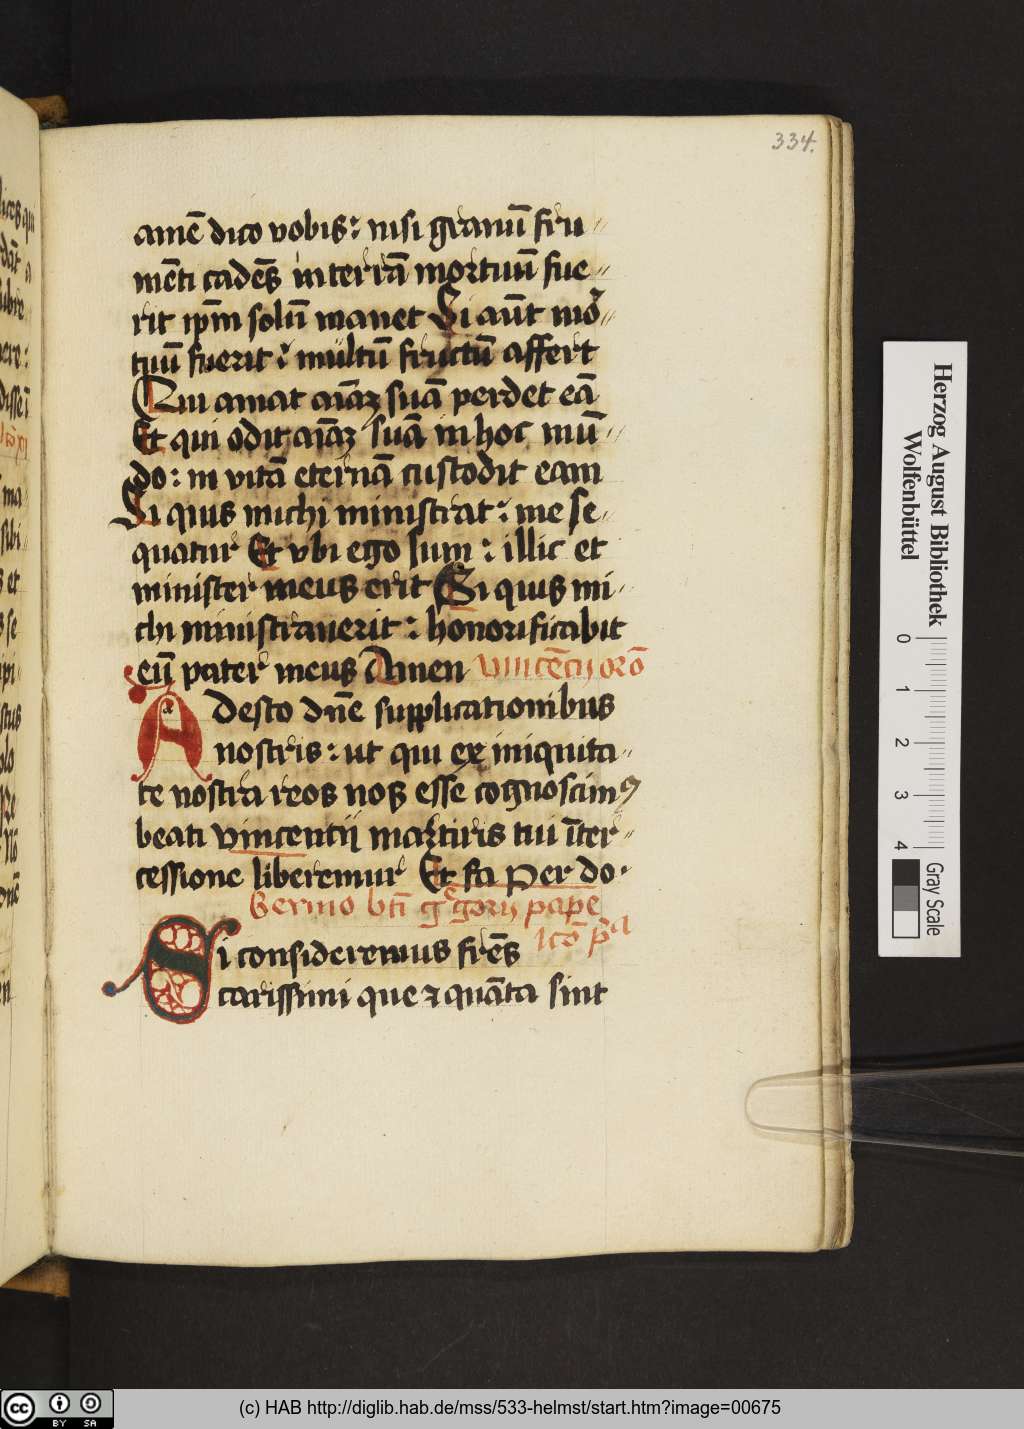 334.
amē dico vobis: nisi granū fru
mēti cadēs in terrā mortuū fue
rit ip̄m solū manet Si aūt mor
tuū fuerit: multū fructū affert
Qui amat aīaʒ suā perdet eā
Et qui odit aīaʒ suā in hoc mū
do: in vitā eternā custodit eam
Si quis michi ministrat: me se
quatur Et vbi ego sum: illic et
minister meus erit Si quis mi
chi ministrauerit: honorificabit
eū pater meus Amen vincēcij orō
Adesto dn̄e supplicationibus
nostris: ut qui ex iniquita
te nostra reos nos esse cognoscimꝯ
beati vincentii martiris tui īter
cessione liberemur Et fa per do
Sermo bt̄i g̊gorij pape
lcō p̄a
Si consideremus frēs
carissimi que ⁊ quāta sint
Herzog August Bibliothek
Wolfenbüttel
0
1
2
3
4
Gray Scale
cc BY SA
(c) HAB http://diglib.hab.de/mss/533-helmst/start.htm?image=00675